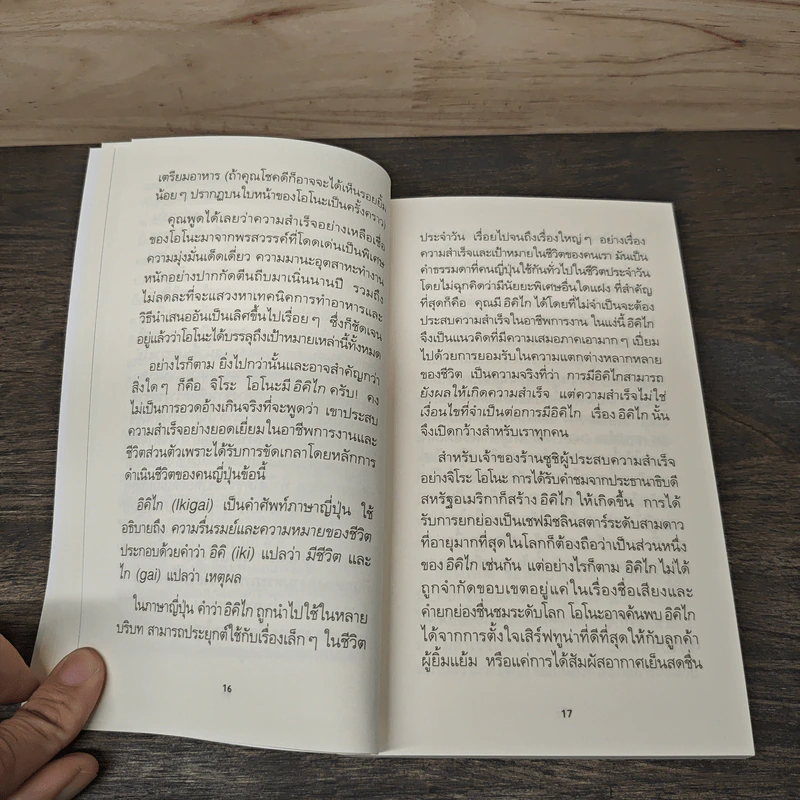 เตรียมอาหาร (ถ้าคุณโชคดีก็อาจจะได้เห็นรอยยิ้ม
น้อย ๆ ปรากฏบนใบหน้าของโอโนะเป็นครั้งคราว)
คุณพูดได้เลยว่าความสำเร็จอย่างเหลือเชื่อ
ของโอโนะมาจากพรสวรรค์ที่โดดเด่นเป็นพิเศษ
ความมุ่งมั่นเด็ดเดี่ยว ความมานะอุตสาหะทำงาน
หนักอย่างปากกัดตีนถีบมาเนิ่นนานปี รวมถึง
ไม่ลดละที่จะแสวงหาเทคนิคการทำอาหารและ
วิธีนำเสนออันเป็นเลิศขึ้นไปเรื่อย ๆ ซึ่งก็ชัดเจน
อยู่แล้วว่าโอโนะได้บรรลุถึงเป้าหมายเหล่านี้ทั้งหมด
อย่างไรก็ตาม ยิ่งไปกว่านั้นและอาจสำคัญกว่า
สิ่งใด ๆ ก็คือ จิโระ โอโนะมี อิคิไก ครับ! คง
ไม่เป็นการอวดอ้างเกินจริงที่จะพูดว่า เขาประสบ
ความสำเร็จอย่างยอดเยี่ยมในอาชีพการงานและ
ชีวิตส่วนตัวเพราะได้รับการขัดเกลาโดยหลักการ
ดำเนินชีวิตของคนญี่ปุ่นข้อนี้
อิคิไก (Ikigai) เป็นคำศัพท์ภาษาญี่ปุ่น ใช้
อธิบายถึง ความรื่นรมย์และความหมายของชีวิต
ประกอบด้วยคำว่า อิคิ (iki) แปลว่า มีชีวิต และ
ไก (gai) แปลว่า เหตุผล
ในภาษาญี่ปุ่น คำว่า อิคิไก ถูกนำไปใช้ในหลาย
บริบท สามารถประยุกต์ใช้กับเรื่องเล็ก ๆ ในชีวิต
16
ประจำวัน เรื่อยไปจนถึงเรื่องใหญ่ ๆ อย่างเรื่อง
ความสำเร็จและเป้าหมายในชีวิตของคนเรา มันเป็น
คำธรรมดาที่คนญี่ปุ่นใช้กันทั่วไปในชีวิตประจำวัน
โดยไม่ฉุกคิดว่ามีนัยยะพิเศษอื่นใดแฝง ที่สำคัญ
ที่สุดก็คือ คุณมี อิคิไก ได้โดยที่ไม่จำเป็นจะต้อง
ประสบความสำเร็จในอาชีพการงาน ในแง่นี้ อิคิไก
จึงเป็นแนวคิดที่มีความเสมอภาคเอามาก ๆ เปี่ยม
ไปด้วยการยอมรับในความแตกต่างหลากหลาย
ของชีวิต เป็นความจริงที่ว่า การมีอิคิไกสามารถ
ยังผลให้เกิดความสำเร็จ แต่ความสำเร็จไม่ใช่
เงื่อนไขที่จำเป็นต่อการมีอิคิไก เรื่อง อิคิไก นั้น
จึงเปิดกว้างสำหรับเราทุกคน
สำหรับเจ้าของร้านซูชิผู้ประสบความสำเร็จ
อย่างจิโระ โอโนะ การได้รับคำชมจากประธานาธิบดี
สหรัฐอเมริกาก็สร้าง อิคิไก ให้เกิดขึ้น การได้
รับการยกย่องเป็นเชฟมิชลินสตาร์ระดับสามดาว
ที่อายุมากที่สุดในโลกก็ต้องถือว่าเป็นส่วนหนึ่ง
ของ อิคิไก เช่นกัน แต่อย่างไรก็ตาม อิคิไก ไม่ได้
ถูกจำกัดขอบเขตอยู่แค่ในเรื่องชื่อเสียงและ
คำยกย่องชื่นชมระดับโลก โอโนะอาจค้นพบ อิคิไก
ได้จากการตั้งใจเสิร์ฟทูน่าที่ดีที่สุดให้กับลูกค้า
ผู้ยิ้มแย้ม หรือแค่การได้สัมผัสอากาศเย็นสดชื่น
17